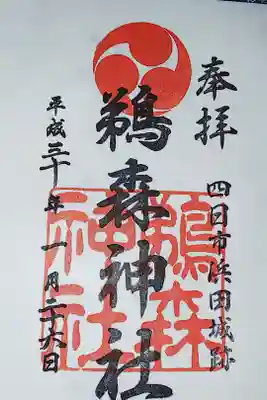 奉拝
四日市浜田城跡
鵜森神社
鵜森神社
平成三十年一月二十六日